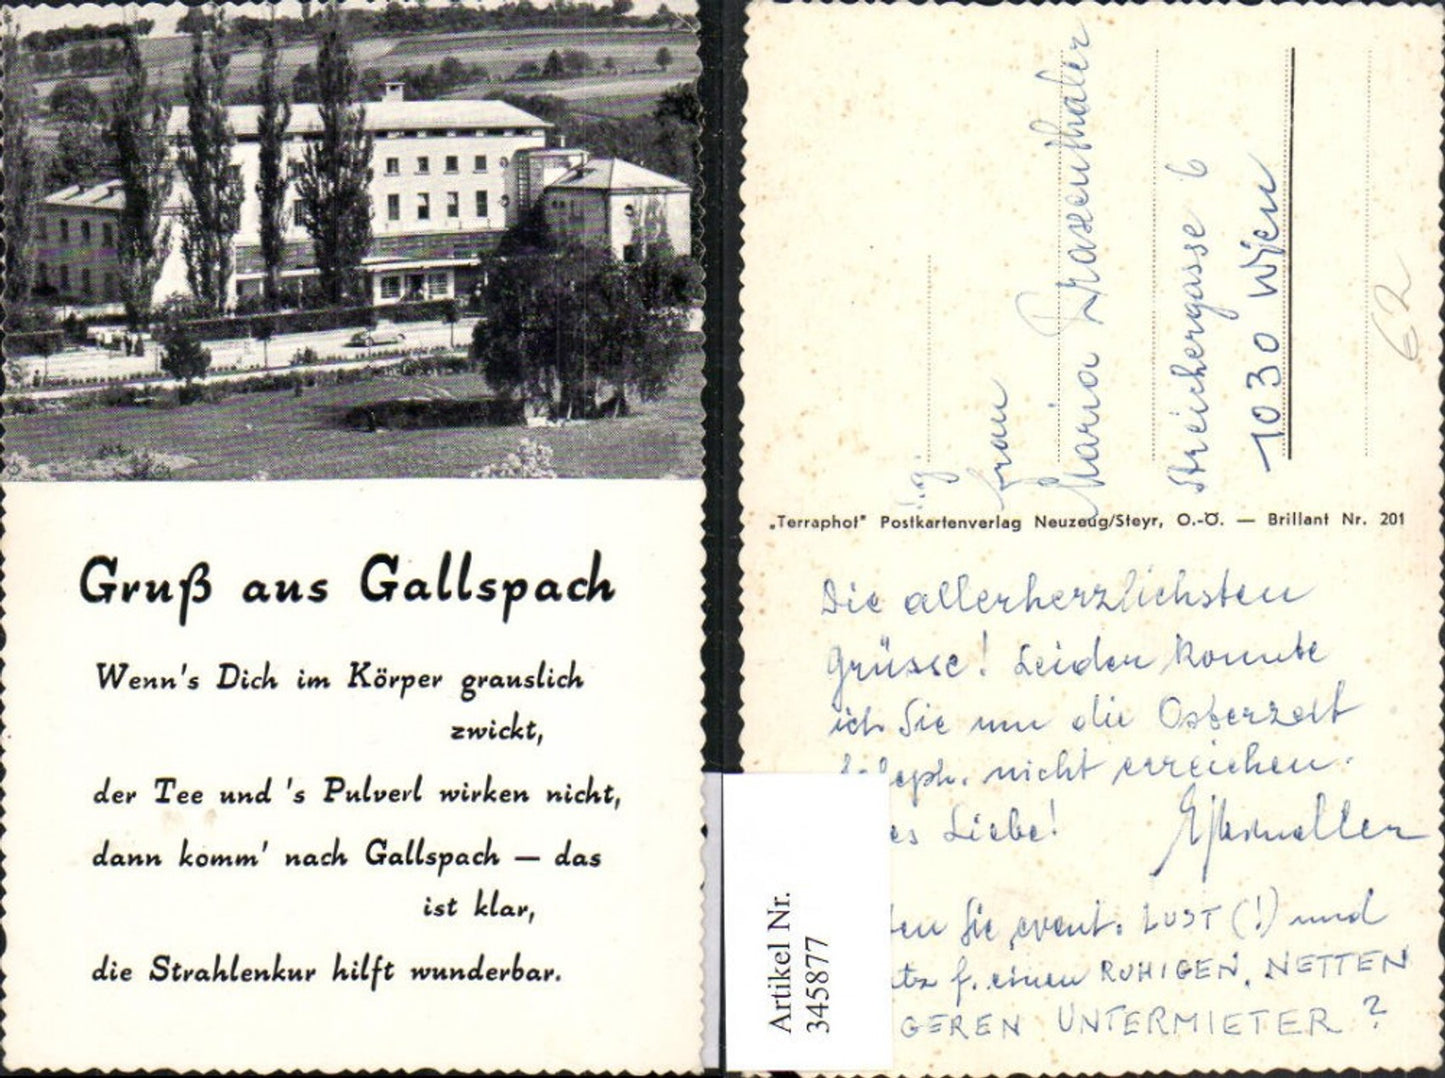 Gruß aus Gallspach
Wenn's Dich im Körper grauslich
zwickt,
der Tee und 's Pulverl wirken nicht,
dann komm' nach Gallspach — das
ist klar,
die Strahlenkur hilft wunderbar.
Frau
Maria
Streichergasse 6
1030 Wien
62
„Terraphot" Postkartenverlag Neuzeug/Steyr, O.-Ö. — Brillant Nr. 201
Die allerherzlichsten
Grüsse! Leider konnte
ich Sie nun die Osterzeit
teleph. nicht erreichen.
es Liebe!
ten Sie event. LUST (!) und
tz f. einen RUHIGEN, NETTEN
GEREN UNTERMIETER?
Artikel Nr.
345877